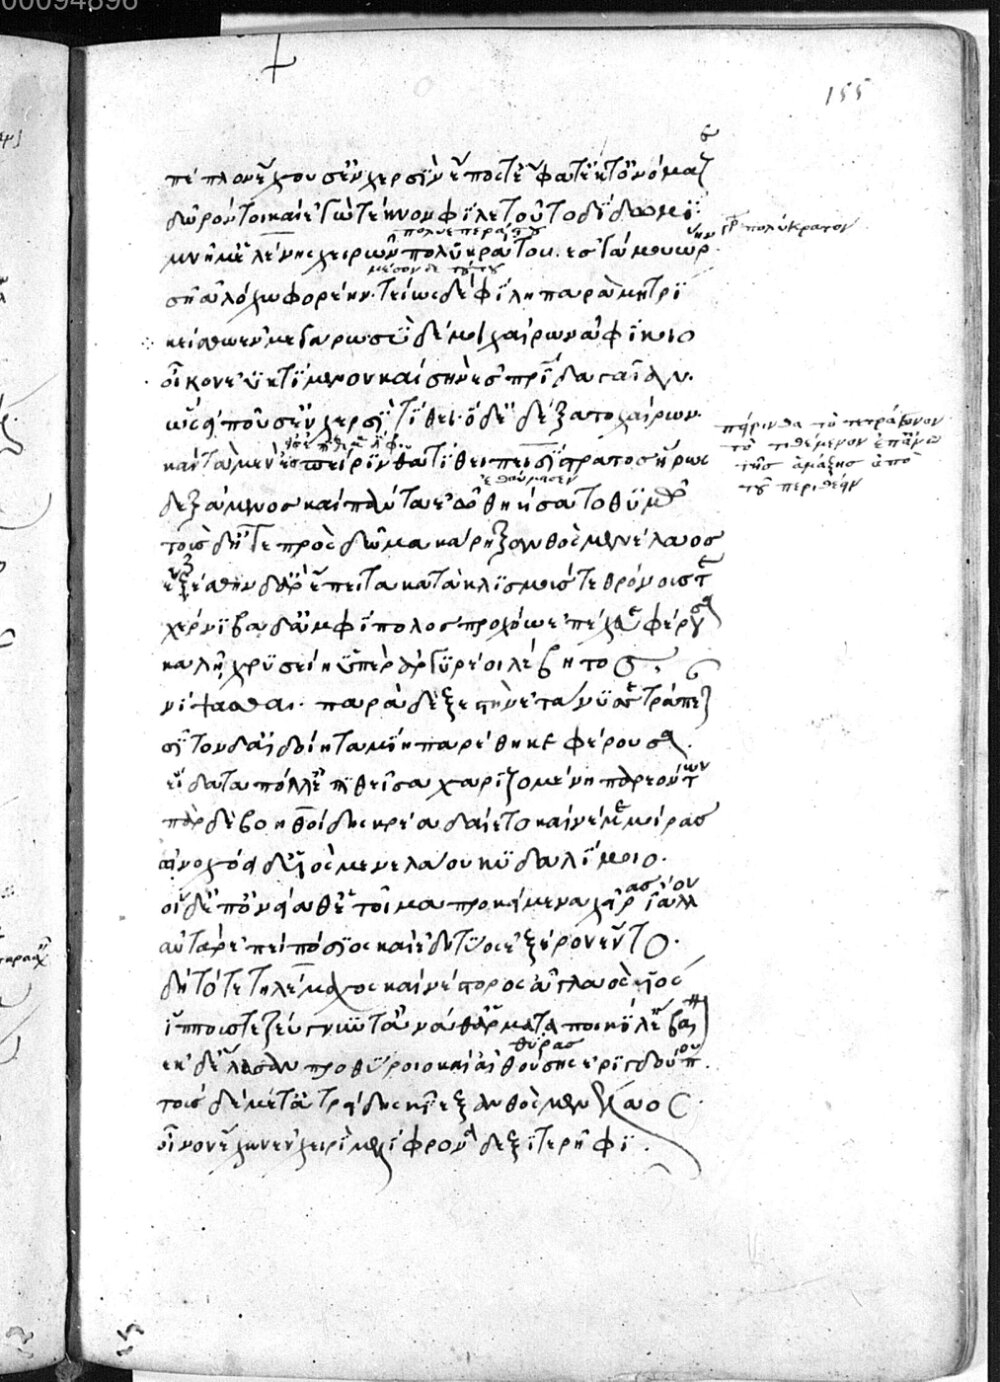 155
πέπλον ἔχουσ' ἐν χερσὶν ἔπος τ' ἔφατ' ἔκ τ' ὀνόμαζε
δῶρόν τοι καὶ ἐγὼ τέκνον φίλε τοῦτο δίδωμι
μνῆμ' ἑλένης χειρῶν πολυηράτου ἐς γάμου ὥρην
γρ πολύκρατον
σῇ ἀλόχῳ φορέειν· τείως δὲ φίλη παρὰ μητρὶ
κεῖσθαι ἐν μεγάρω σὺ δέ μοι χαίρων ἀφίκοιο
οἶκον ἐϋκτίμενον καὶ σὴν ἐς πατρίδα γαῖαν.
ὣς εἰποῦσ' ἐν χερσὶ τίθει· ὁ δὲ δέξατο χαίρων·
καὶ τὰ μὲν ἐς πείρινθα τίθει πεισίστρατος ἥρως
πείρινθα τὸ τετράγωνον
τὸ τιθέμενον ἐπάνω
τῆς ἁμάξης ἀπὸ
τοῦ περιθεῖν
δεξάμενος καὶ πάντα ἑῷ θηήσατο θυμῷ
τοὺς δ' ἦγε πρὸς δῶμα κάρη ξανθὸς μενέλαος
ἑζέσθην δ' ἄρ' ἔπειτα κατὰ κλισμούς τε θρόνους τε
χέρνιβα δ' ἀμφίπολος προχόῳ ἐπέχευε φέρουσα
καλῇ χρυσείῃ ὑπὲρ ἀργυρέοιο λέβητος
νίψασθαι· παρὰ δὲ ξεστὴν ἐτάνυσσε τράπεζαν
σῖτον δ' αἰδοίη ταμίη παρέθηκε φέρουσα.
εἴδατα πόλλ' ἐπιθεῖσα χαριζομένη παρεόντων
πὰρ δὲ βοηθοίδης κρέα δαίετο καὶ νέμε μοίρας
οἰνοχόει δ' υἱὸς μενελάου κυδαλίμοιο.
οἱ δ' ἐπ' ὀνείαθ' ἑτοῖμα προκείμενα χεῖρας ἴαλλον
αὐτὰρ ἐπεὶ πόσιος καὶ ἐδητύος ἐξ ἔρον ἕντο.
δὴ τότε τηλέμαχος καὶ νέστορος ἀγλαὸς υἱὸς
ἵππους τε ζεύγνυντ' ἀνά θ' ἅρματα ποικίλ' ἔβαινον
θύρας
ἐκ δ' ἔλασαν προθύροιο καὶ αἰθούσης ἐριγδούπου.
τοὺς δὲ μετ' ἀτρείδης ἔκιε ξανθὸς μενέλαος.
οἶνον ἔχων ἐν χειρὶ μελίφρονα δεξιτερῆφι.